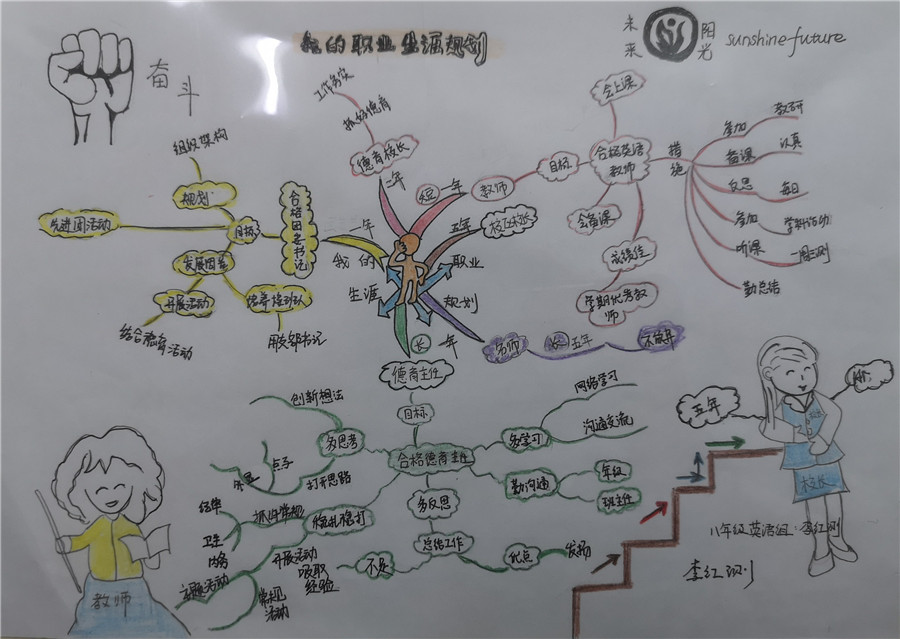 我的职业生涯规划
未来
阳光
sunshine future
奋斗
工作务实
抓好德育
德育校长
一年
组织架构
规划
先进团活动
目标
发展团员
开展活动
结合德育活动
培养接班人
用支部书记
合格团委书记
一年
我的
职业
生涯
规划
短
一年
教师
目标
合格英语教师
会上课
会备课
成绩佳
学期优秀教师
措施
参加
教研
备课
认真
反思
每日
参加
学科活动
听课
一周三测
勤总结
五年
校区校长
名师
长
五年
不放弃
长
一年
德育主任
目标
合格德育主任
多思考
创新想法
点子
打开思路
多学习
网络学习
沟通交流
勤沟通
年级
班主任
稳扎稳打
抓好常规
纪律
卫生
内务
开展活动
主题活动
常规活动
多反思
总结工作
不足
吸取经验
优点
发扬
五年
校长
教师
八年级英语组：李红刚
李红刚